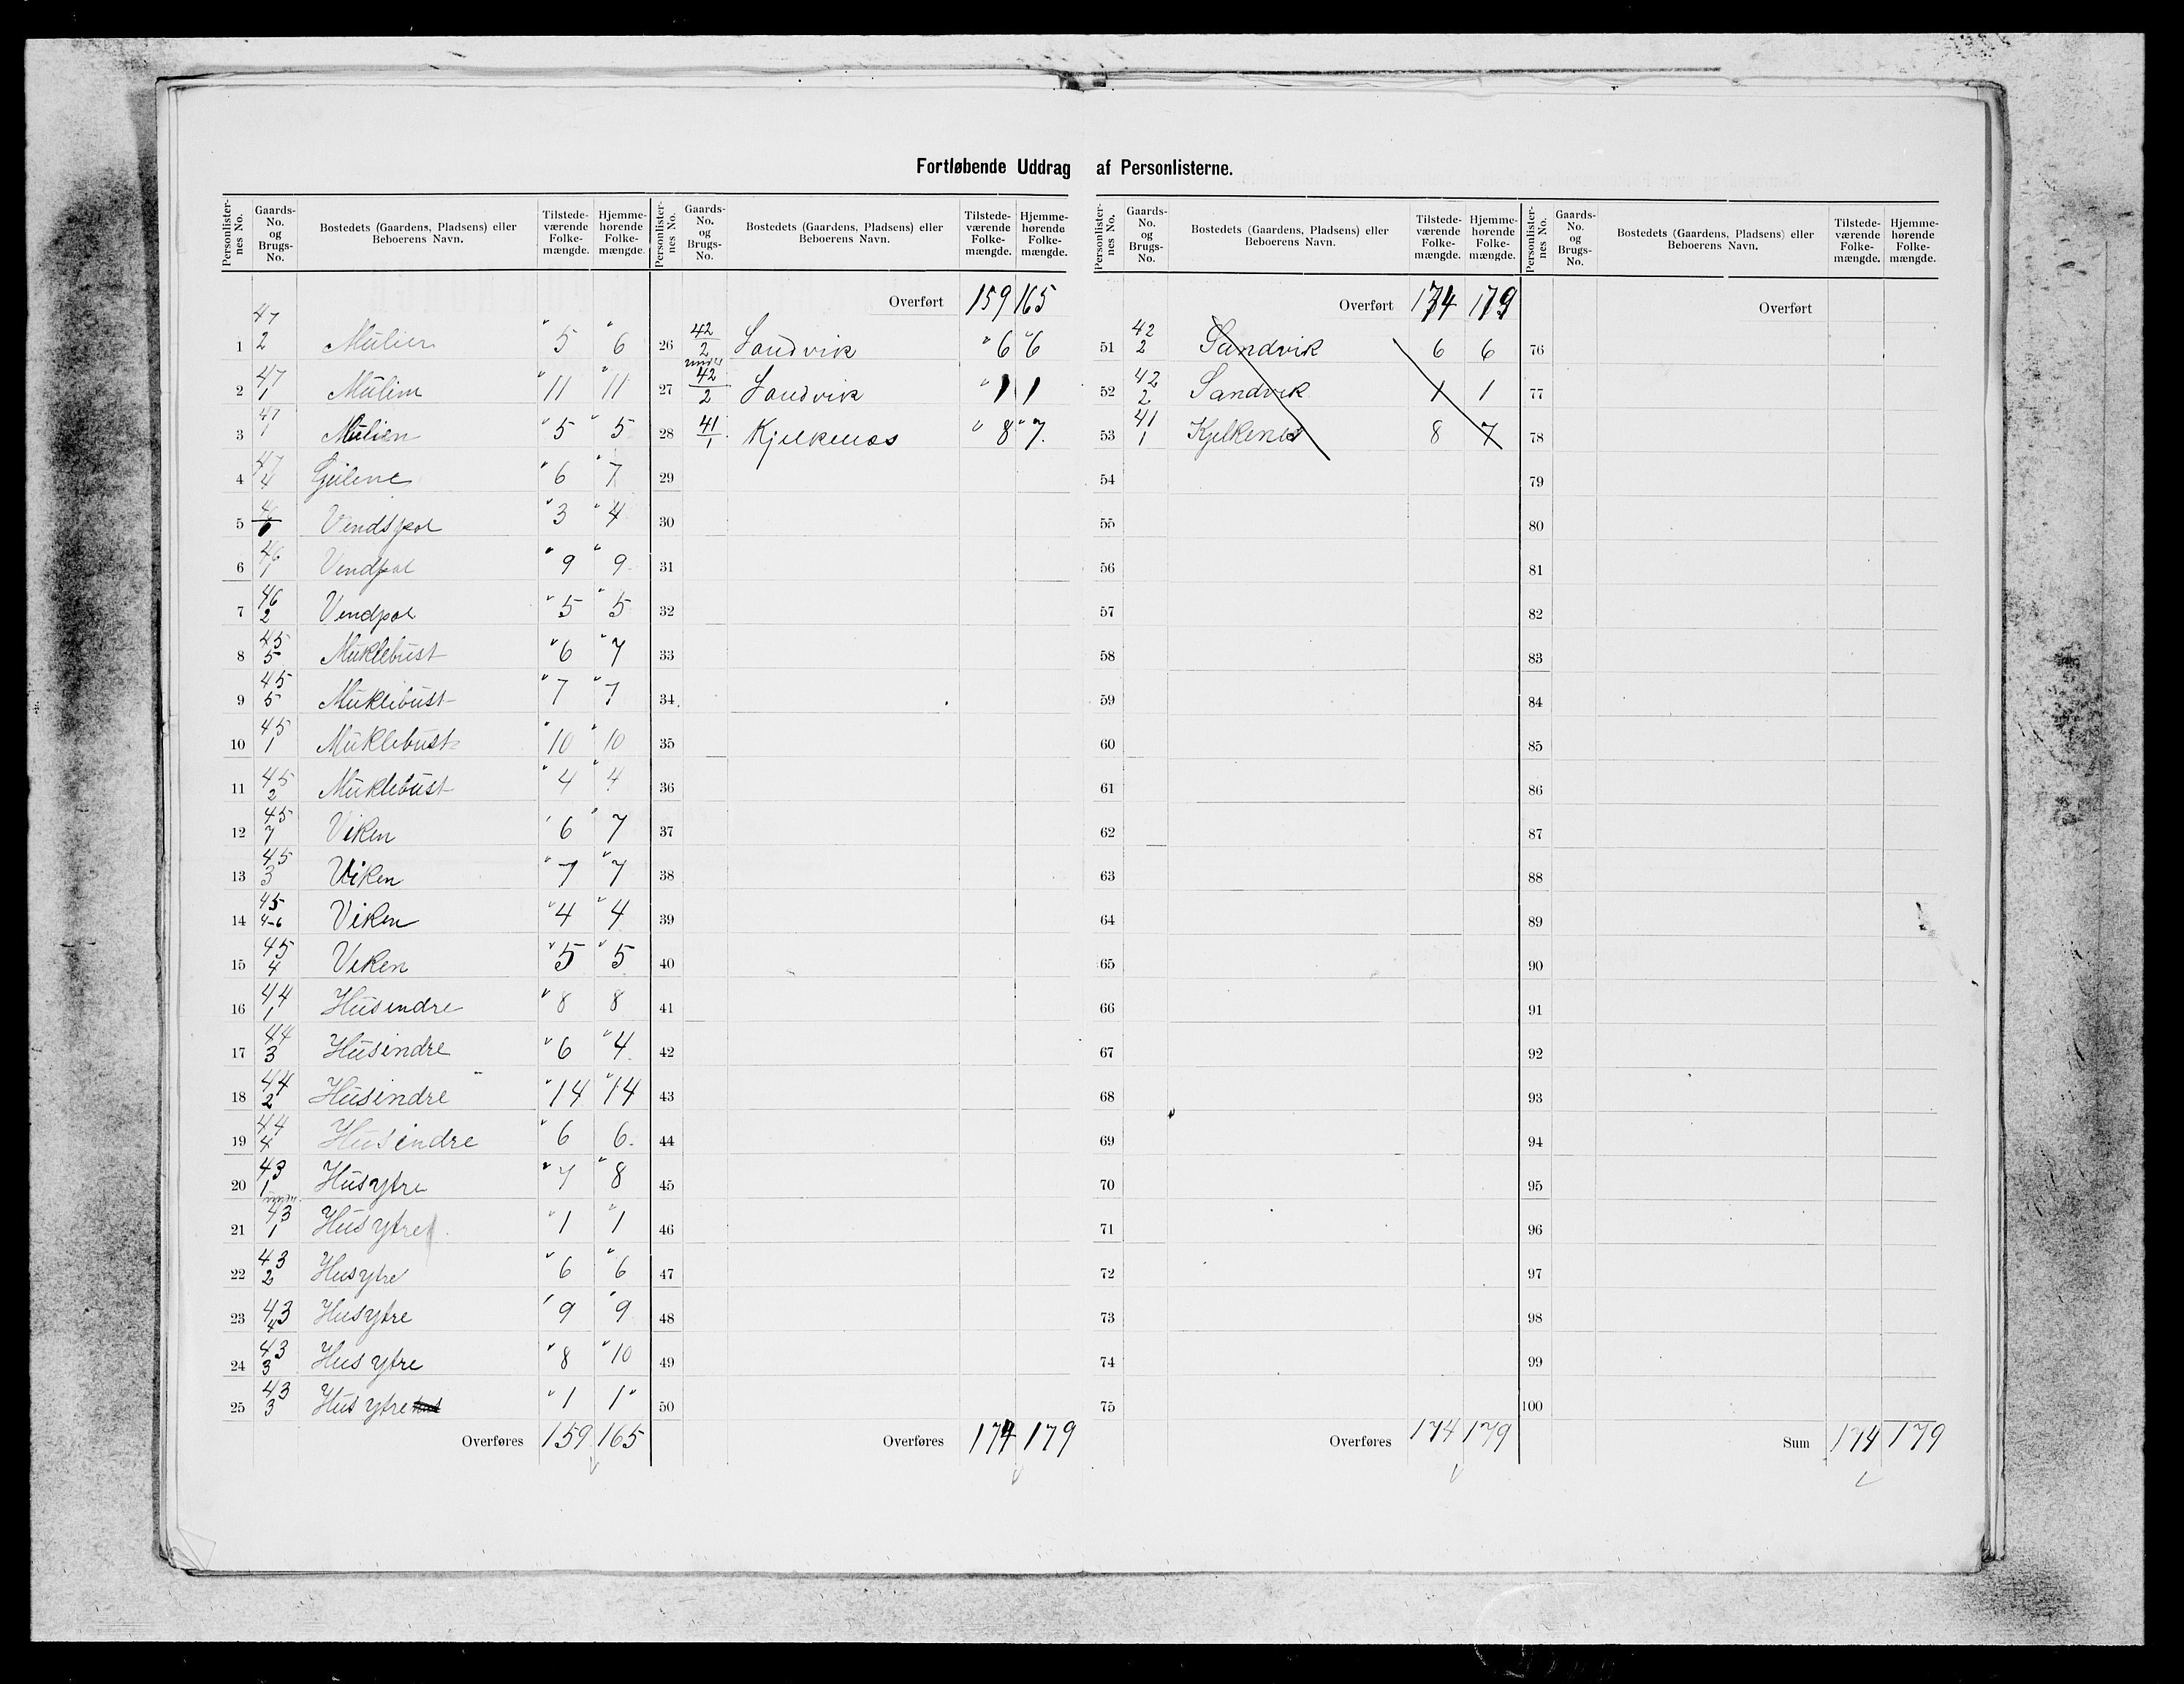 Fortløbende Uddrag af Personlisterne.
Personlister-nes No. | Gaards-No. og Brugs-No. | Bostedets (Gaardens, Pladsens) eller Beboerens Navn. | Tilstede-værende Folke-mængde. | Hjemme-hørende Folke-mængde.
1 47/2 Mulien " 5 " 6
2 47/1 Mulien " 11 " 11
3 47/1 Mulien " 5 " 5
4 47/4 Geilene " 6 " 7
5 Vendspol " 3 " 4
6 46/1 Vendpol " 9 " 9
7 46/2 Vendpol " 5 " 5
8 45/5 Muklebust " 6 " 7
9 45/5 Muklebust " 7 " 7
10 45/1 Muklebust " 10 " 10
11 45/2 Muklebust " 4 " 4
12 45/7 Viken " 6 " 7
13 45/3 Viken " 7 " 7
14 45/4-6 Viken " 4 " 4
15 45/4 Viken " 5 " 5
16 44/1 Husindre " 8 8
17 44/3 Husindre " 6 " 4
18 44/2 Husindre " 14 " 14
19 44/4 Husindre " 6 6
20 43/1 Husytre " 7 " 8
21 under 43/1 Husytre " 1 " 1
22 43/2 Husytre " 6 " 6
23 43/4 Husytre " 9 " 9
24 43/3 Husytre " 8 " 10
25 43/3 Husytre " 1 1 "
Overføres 159 165
Personlister-nes No. | Gaards-No. og Brugs-No. | Bostedets (Gaardens, Pladsens) eller Beboerens Navn. | Tilstede-værende Folke-mængde. | Hjemme-hørende Folke-mængde.
Overført 159 165
26 42/2 Sandvik " 6 " 6
27 under 42/2 Sandvik " 1 1
28 41/1 Kjelkenes " 8 " 7.
29
30
31
32
33
34
35
36
37
38
39
40
41
42
43
44
45
46
47
48
49
50
Overføres 174 179
Personlister-nes No. | Gaards-No. og Brugs-No. | Bostedets (Gaardens, Pladsens) eller Beboerens Navn. | Tilstede-værende Folke-mængde. | Hjemme-hørende Folke-mængde.
Overført 174 179
51 42/2 Sandvik 6 6
52 42/2 Sandvik 1 1
53 41/1 Kjelkenes 8 7
54
55
56
57
58
59
60
61
62
63
64
65
66
67
68
69
70
71
72
73
74
75
Overføres 174 179
Personlister-nes No. | Gaards-No. og Brugs-No. | Bostedets (Gaardens, Pladsens) eller Beboerens Navn. | Tilstede-værende Folke-mængde. | Hjemme-hørende Folke-mængde.
Overført
76
77
78
79
80
81
82
83
84
85
86
87
88
89
90
91
92
93
94
95
96
97
98
99
100
Sum 174 179